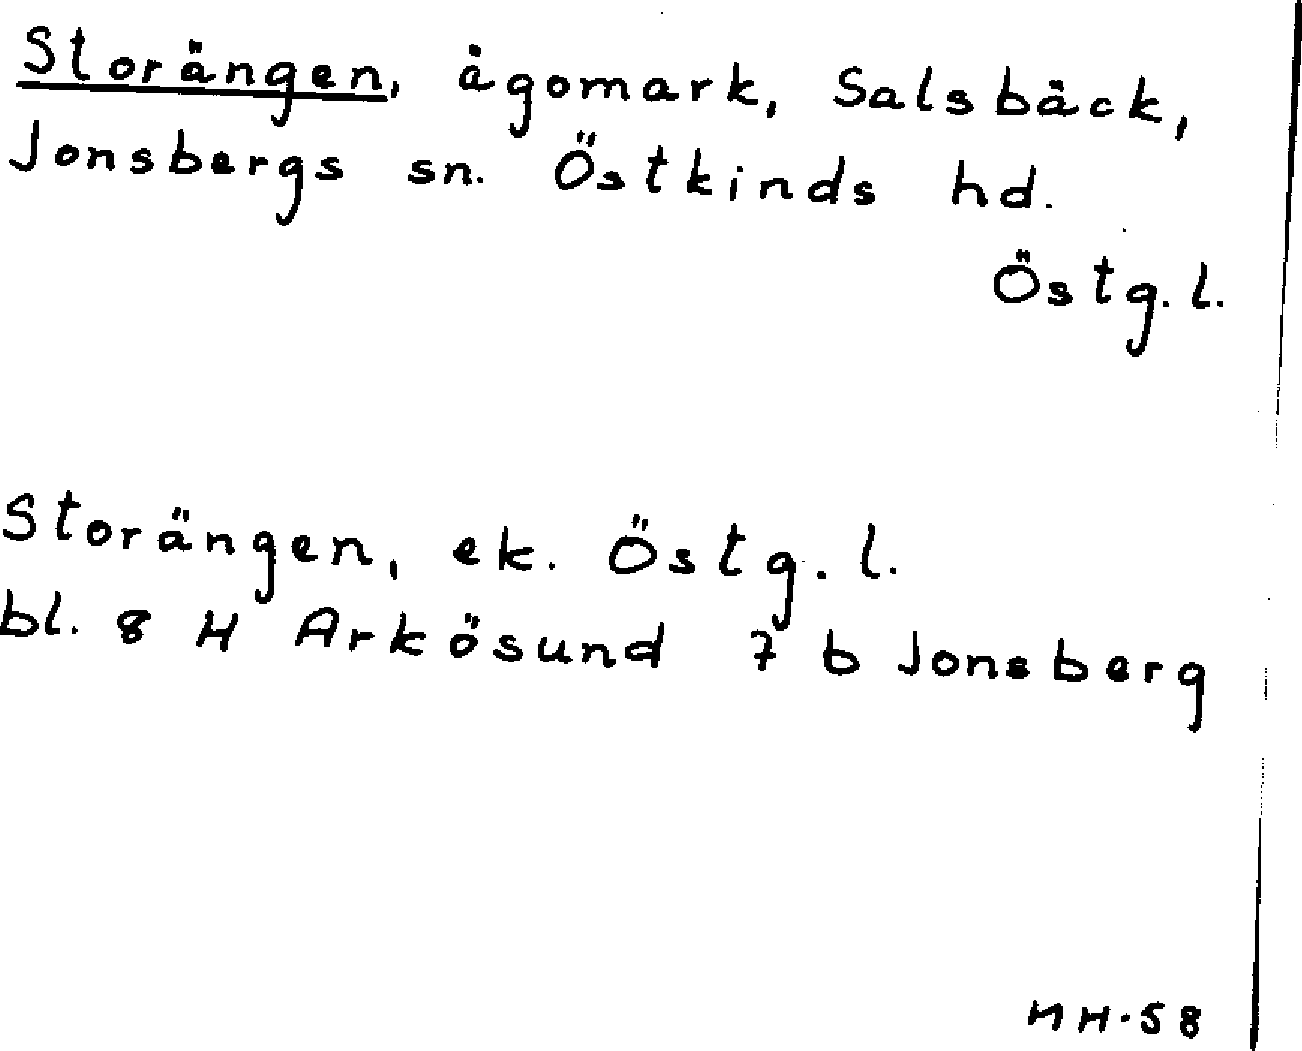 Storängen, ägomark, Salsbäck,
Jonsbergs sn. Östkinds hd.
Östg. l.
Storängen, ek. Östg. l.
bl. 8 H Arkösund 7 b Jonsberg
MH·58